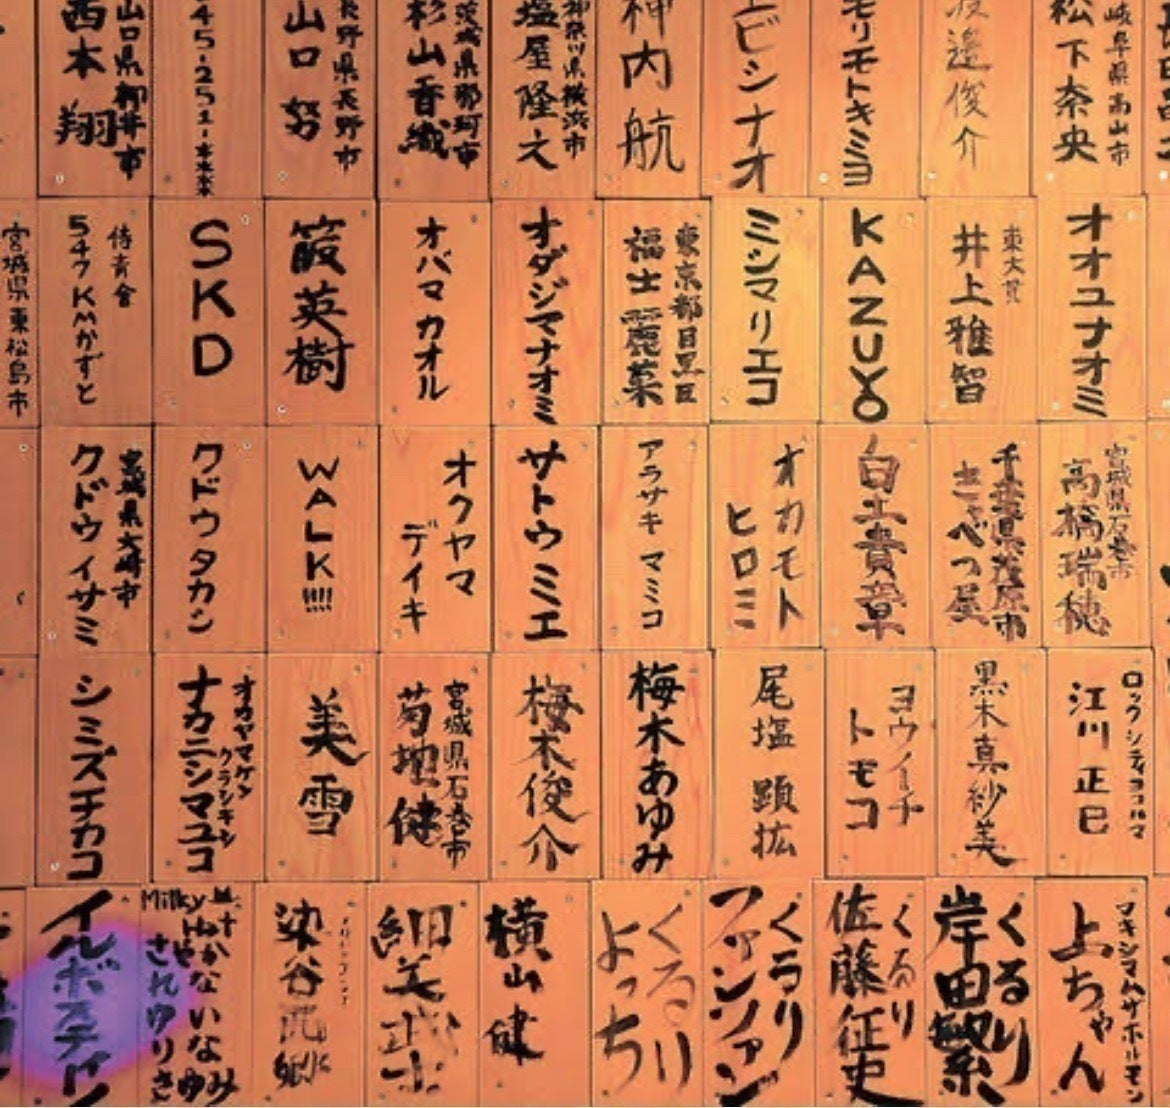 岐阜県高山市
松下奈央
邉俊介
モリモトキミヨ
エビシナオ
神内航
神奈川県横浜市
塩屋隆之
茨城県那珂市
杉山香織
長野県長野市
山口努
45-251-***
山口県柳井市
西本翔
オオユナオミ
井上雅智
KAZUYO
ミシマリエコ
東京都目黒区
福士麗菜
オダジマナオミ
オバマカオル
英樹
SKD
侍青會
547KMかずと
宮城県東松島市
宮城県石巻市
高橋瑞穂
千葉県茂原市
きゃべつ屋
白土貴章
オカモト
ヒロミ
アラサキ マミコ
サトウミエ
オクヤマ
デイキ
WALK!!!!
クドウタカシ
宮城県大崎市
クドウイサミ
ロックシティヨコハマ
江川正巳
黒木真紗美
ヨウイチ
トモコ
尾塩顕拡
梅木あゆみ
梅木俊介
宮城県石巻市
菊地健
美雪
オカヤマケン
クラシキシ
ナカニシマユコ
シミズチカコ
マキシマムザホルモン
上ちゃん
くるり
岸田繁
くるり
佐藤征史
くるり
ファンファン
くるり
よっち
横山健
細美武士
染谷西郷
Milky
イルボステイン